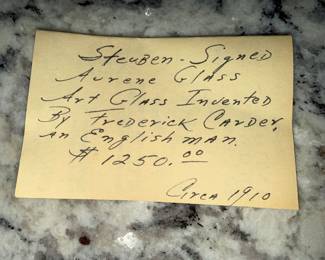 Steuben - Signed
Aurene Glass
Art Glass Invented
By Frederick Carder,
an Englishman.
$1250.00
Circa 1910